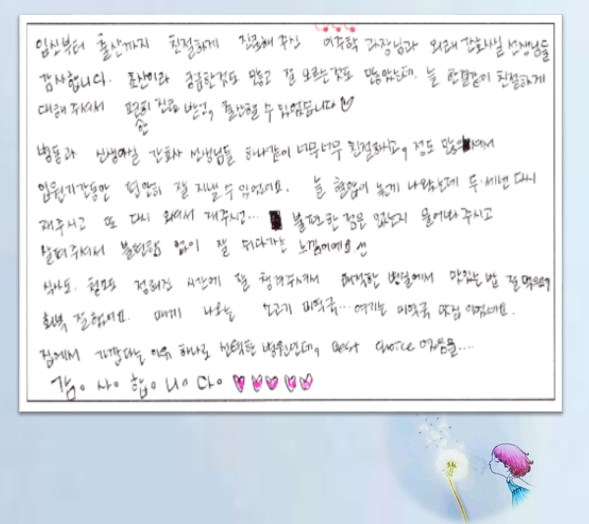 임신부터 출산까지 친절하게 진료해 주신 이주학 과장님과 외래 간호사실 선생님들
감사합니다. 초산이라 궁금한것도 많고 잘 모르는것도 많았는데, 늘 한결같이 친절하게
대해 주셔서 편히 진료 받고, 출산할 수 있었습니다♡
순
병동과 신생아실 간호사 선생님들 하나같이 너무너무 친절하시고, 정도 많으셔서
입원기간동안 편안히 잘 지낼 수 있었어요. 늘 혈압이 높게 나왔는데 두·세번 다시
재주시고 또 다시 와서 재주시고… 불편한 점은 없는지 물어봐 주시고
살펴주셔서 불편함 없이 잘 쉬다가는 느낌이에요
식사도, 정해진 시간에 잘 챙겨주셔서 쾌적한 병실에서 맛있는 밥 잘 먹었고
회복 잘 했어요. 매끼 나오는 소고기 미역국… 여기는 미역국 맛집 이었네요.
집에서 가깝다는 이유 하나로 선택한 병원인데, best choice 였음을….
감。사。합。니。다。♡♡♡♡♡